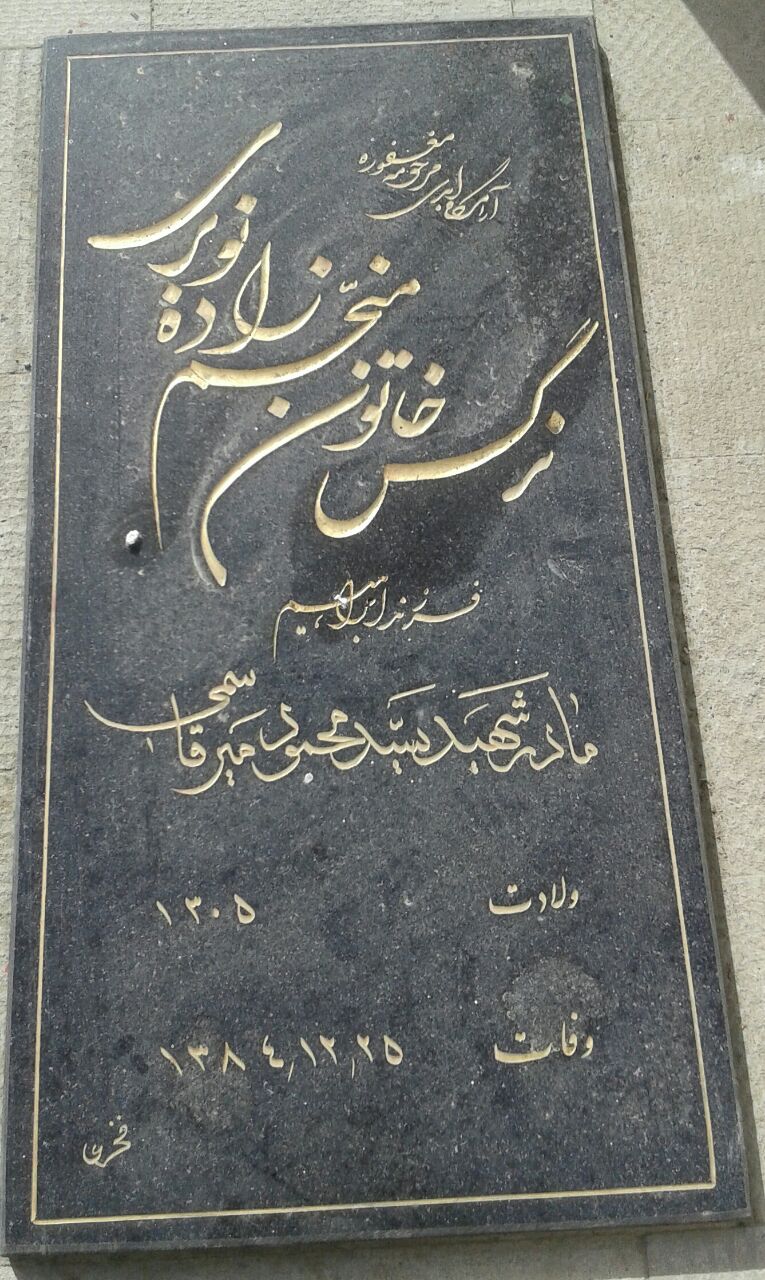 آرامگاه ابدی مرحومه مغفوره
نرگس خاتون منجّم زاده نوری
فرزند ابراهیم
مادر شهید سیّد محمود میرقاسمی
ولادت ۱۳۰۵
وفات ۱۳۸۴٫۱۲٫۲۵